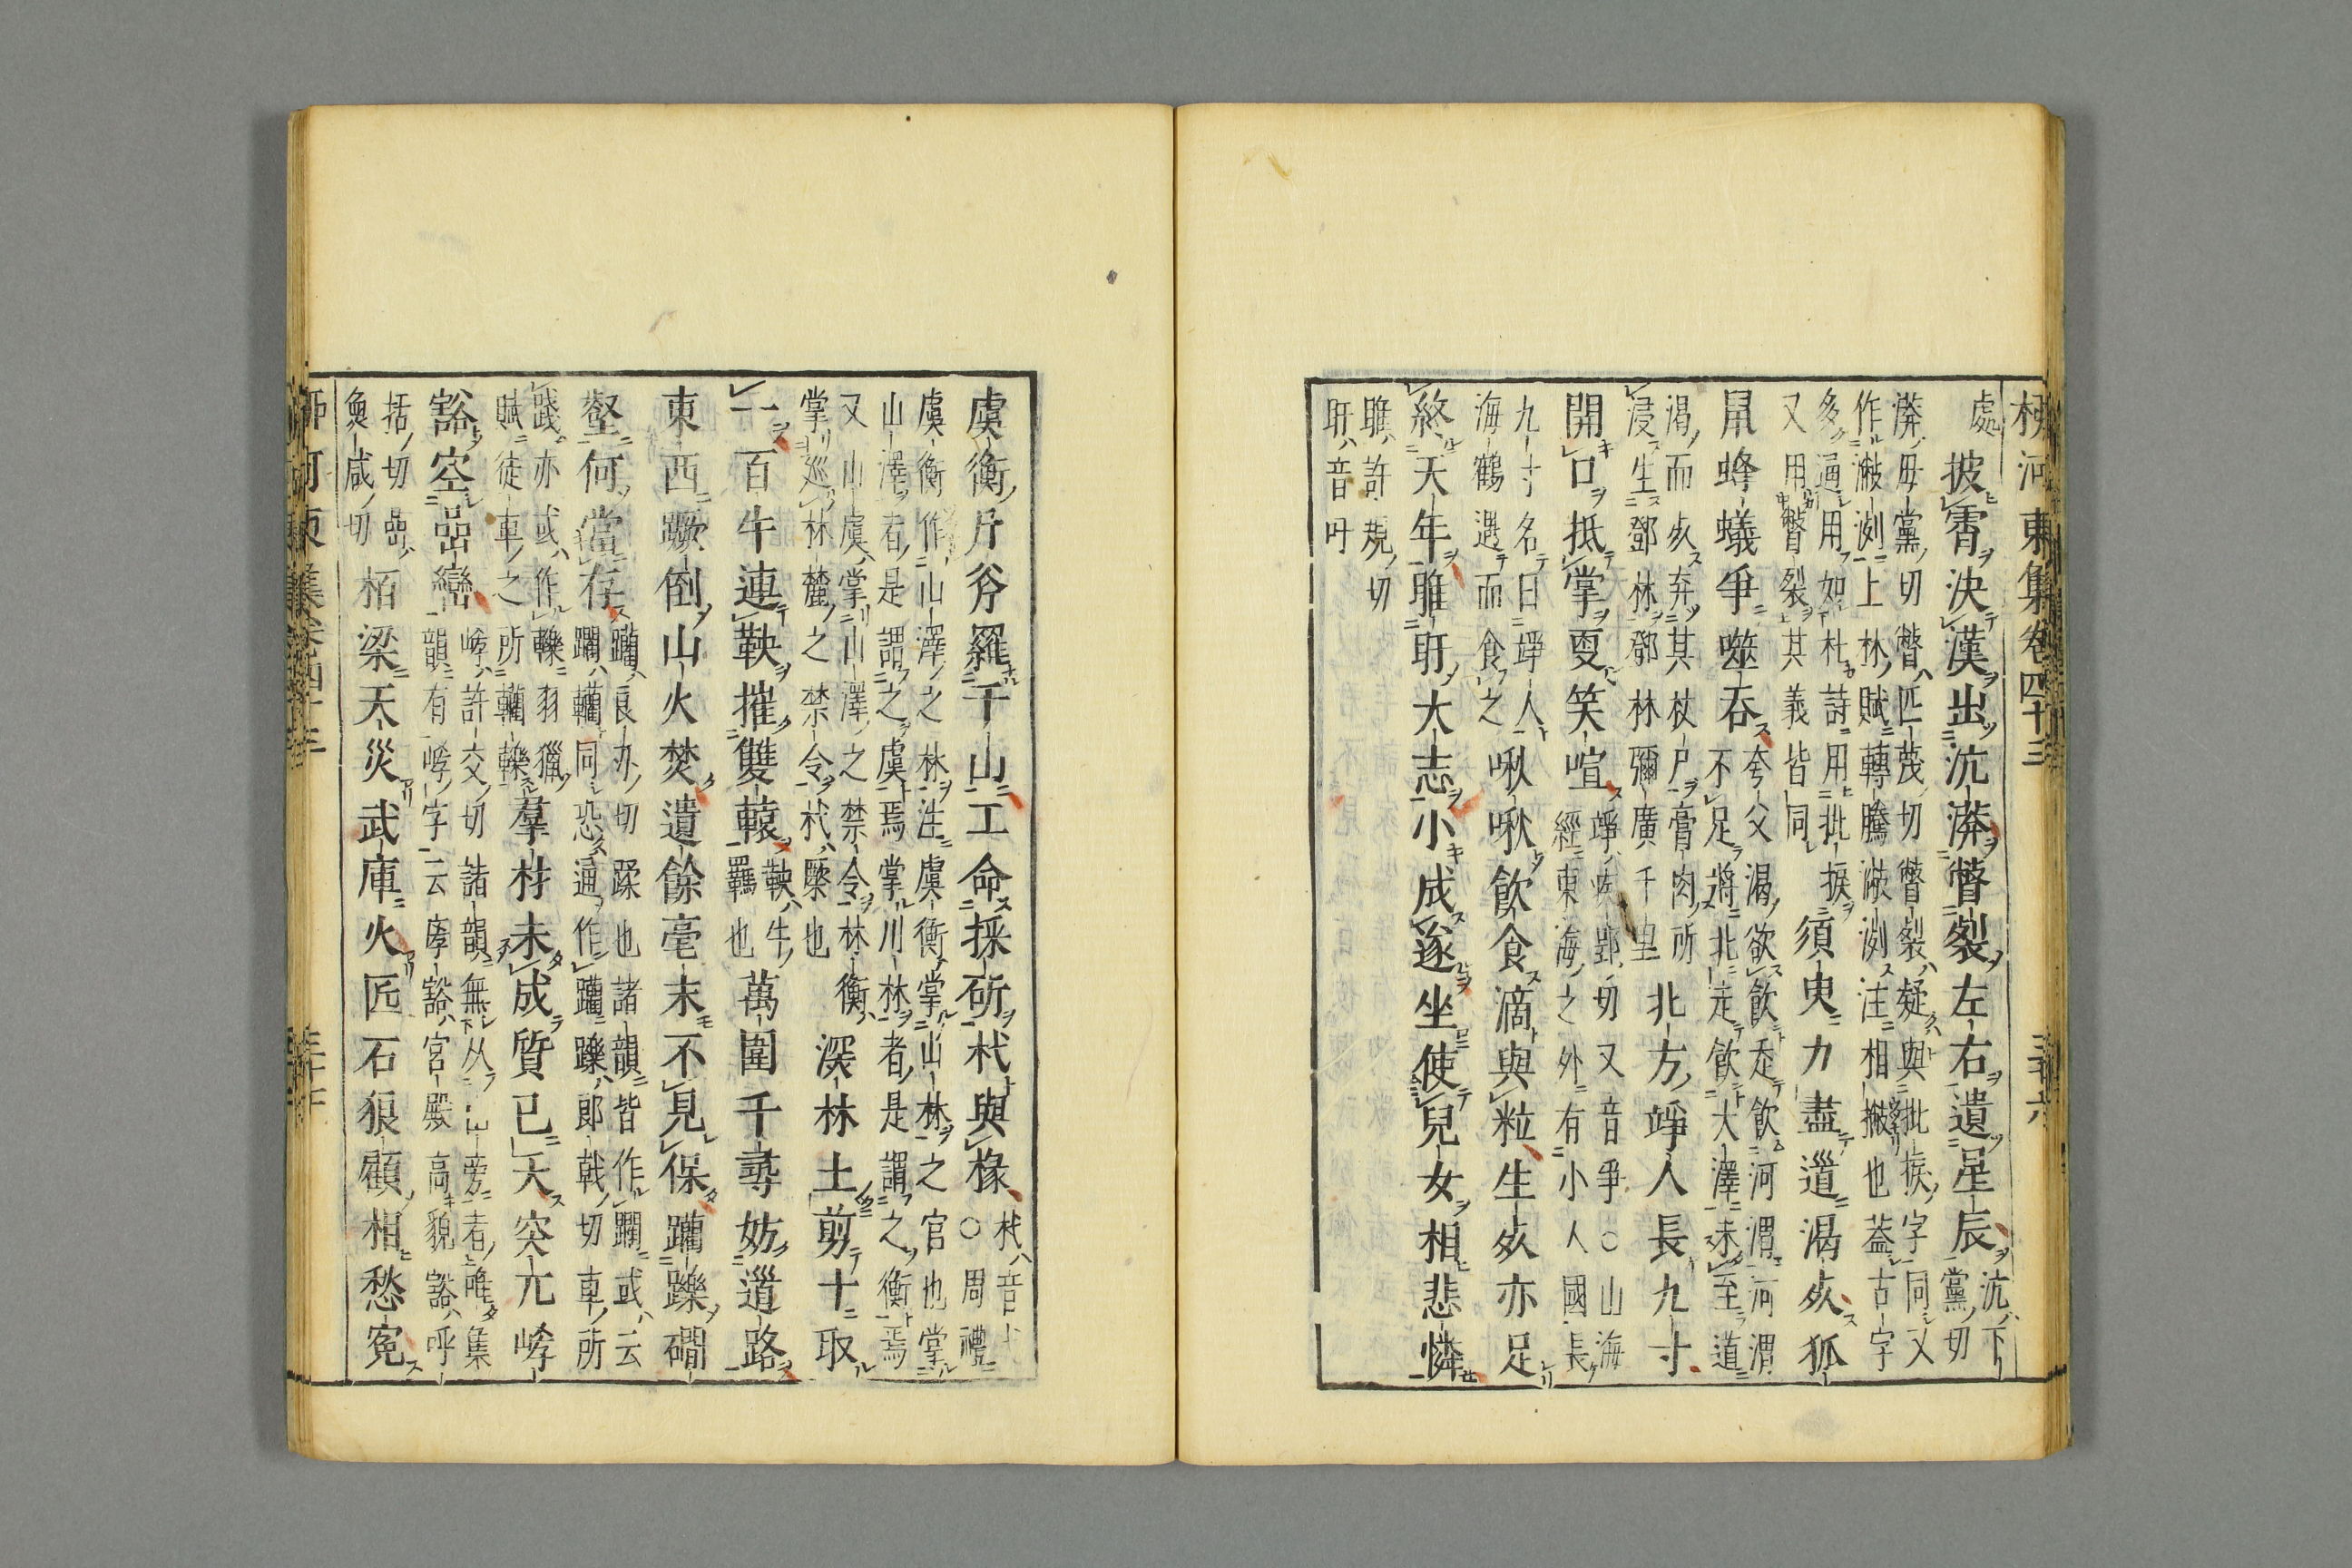 柳河東集卷四十三 三十六
處披霄決漢出沆漭瞥裂左右遺星辰沆下
黨切
漭母黨切瞥匹茂切瞥裂疑與批挨字同又
作潎洌上林賦轉騰潎洌注相撇也蓋古字
多通用如杜詩用批捩
又用瞥裂其義皆同須臾力盡道渴死狐
鼠蜂蟻爭噬吞夸父渴欲飲走飲河渭河渭
不足將北走飲大澤未至道
渴而死弃其杖尸膏肉所
浸生鄧林鄧林彌廣千里北方竫人長九寸
開口抵掌更笑喧竫疾郢切又音爭○山海
經東海之外有小人國長
九寸名曰竫人
海鶴遇而食之啾啾飲食滴與粒生死亦足
終天年睢盱大志小成遂坐使兒女相悲憐
睢許規切
盱音吁
虞衡斤斧羅千山工命採斫杙與椽杙音弋
○周禮
虞衡作山澤之林注虞衡掌山林之官也掌
山澤者是謂之虞焉掌川林者是謂之衡焉
又山虞掌山澤之禁令林衡
掌巡林麓之禁令杙檿也深林土剪十取
一百牛連鞅摧雙轅鞅牛
羈也萬圍千尋妨道路
東西蹶倒山火焚遺餘毫末不見保躪躒磵
壑何當存躪良刃切蹂也諸韻皆作躙或云
躙轥同恐通作躪躒郎戟切車所
踐亦或作轢羽獵
賦徒車之所轥轢羣材未成質已夭突兀嵪
豁空嵒巒嵪許交切諸韻無从山旁者唯集
韻有嵪字云庨豁宮殿高貌豁呼
括切嵒
奐咸切栢梁天災武庫火匠石狼顧相愁寃
柳河東集卷四十三